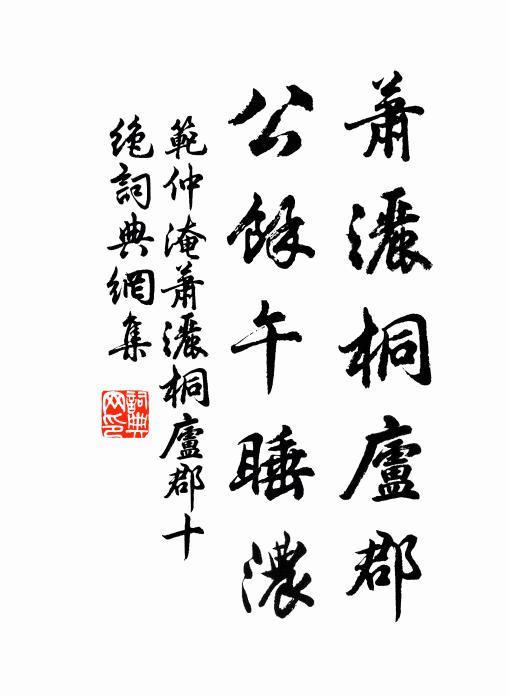 蕭灑桐廬郡
公餘午睡濃
範仲淹蕭灑桐廬郡十
絶詞典網集
詞典
网印